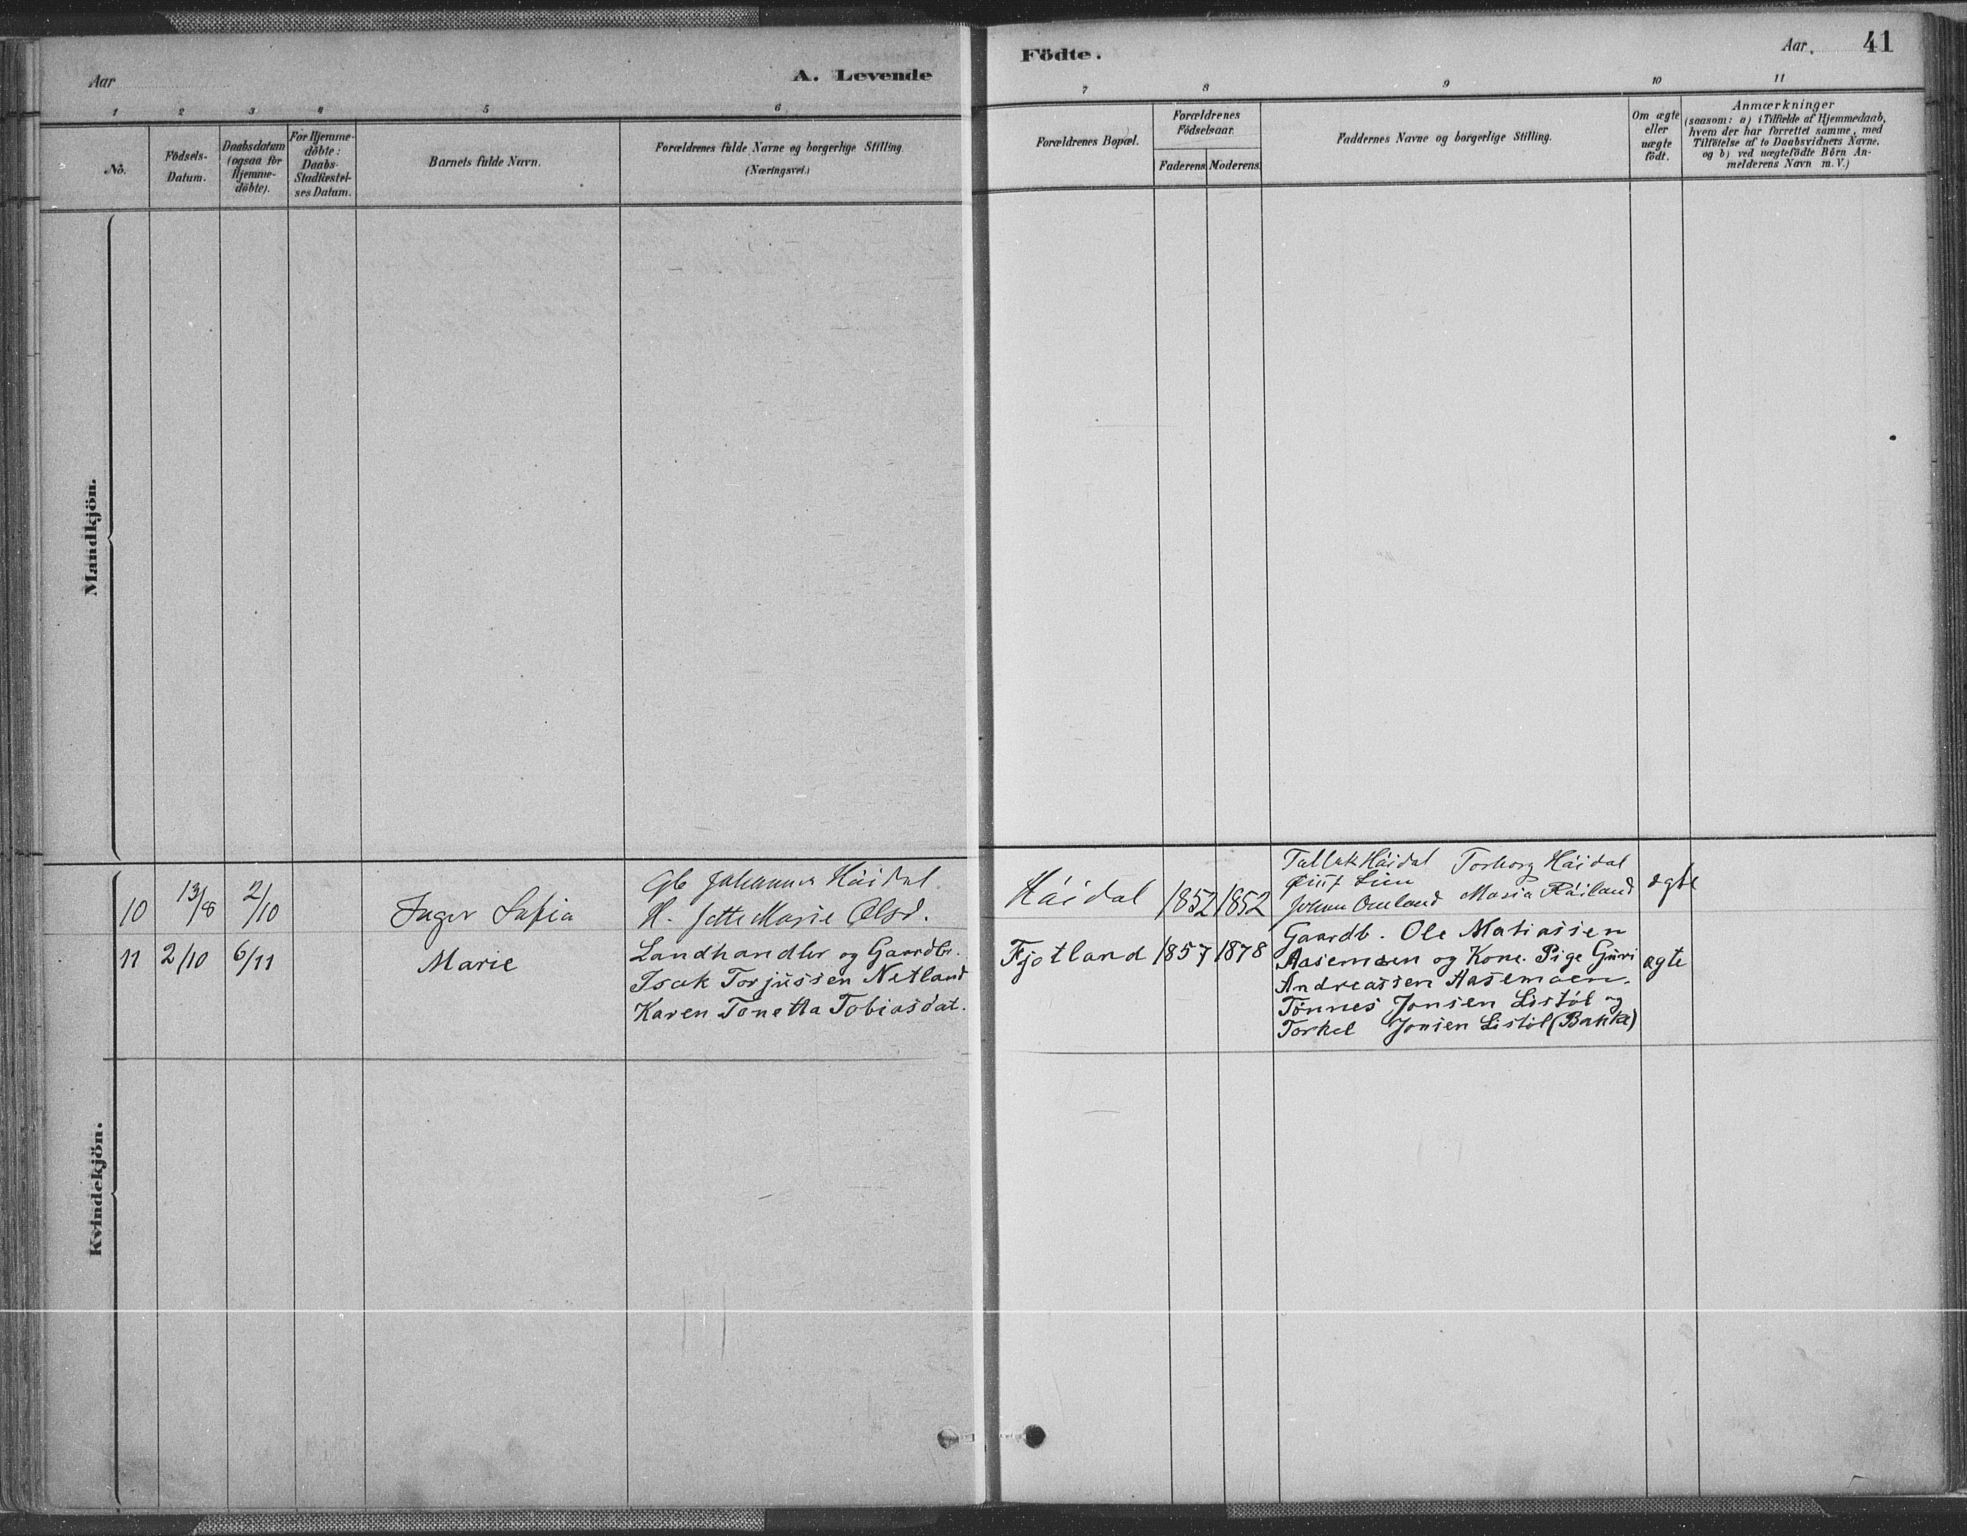 Aar
A. Levende
Födte.
Aar.
41
1 2 3 4 5 6 7 8 9 10 11
No.
Födsels-
Datum.
Daabsdatum
(ogsaa for
Hjemme-
döbte).
For Hjemme-
döbte:
Daabs-
Stadfæstel-
ses Datum.
Barnets fulde Navn.
Forældrenes fulde Navne og borgerlige Stilling.
(Næringsvei.)
Forældrenes Bopæl.
Forældrenes
Födselsaar.
Faderens. Moderens.
Faddernes Navne og borgerlige Stilling.
Om ægte
eller
uægte
födt.
Anmærkninger
(saasom: a) i Tilfælde af Hjemmedaab,
hvem der har forrettet samme, med
Tilföielse af to Daabsvidners Navne,
og b) ved uægtefödte Börn An-
melderens Navn m. V.)
Mandkjön.
Kvindekjön.
10
13/8
2/10
Inger Sofia
Gb Johannes Håidal.
H. Jette Marie Olsd.
Håidal
1852 1852
Tallak Håidal Torborg Håidal
Lien
Johan Omland Maria Råiland
ægte
11
2/10
6/11
Marie
Landhandler og Gaardbr.
Isak Torjussen Netland
Karen Tonetta Tobiasdat.
Fjotland
1857 1878
Gaardb. Ole Matiassen
Aasemoen og Kone. Pige Guri
Andreassen Aasemoen.
Tönnes Jonsen Listöl og
Torkel Jonsen Listöl (Bakka)
ægte